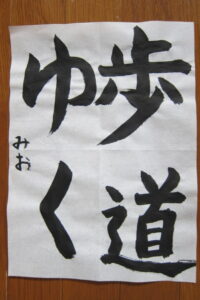 歩道
ゆく
みお